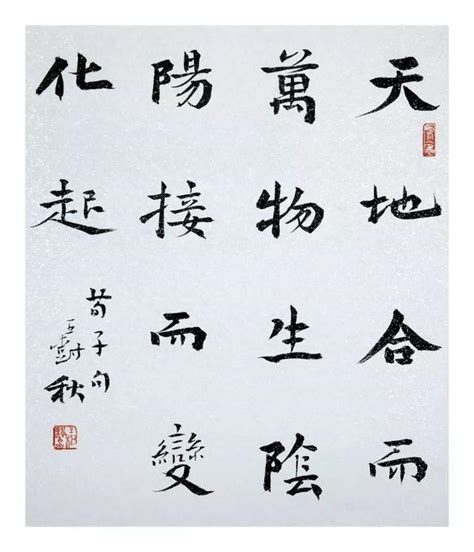 天地合而
萬物生陰
陽接而變
化起
荀子句
王樹秋